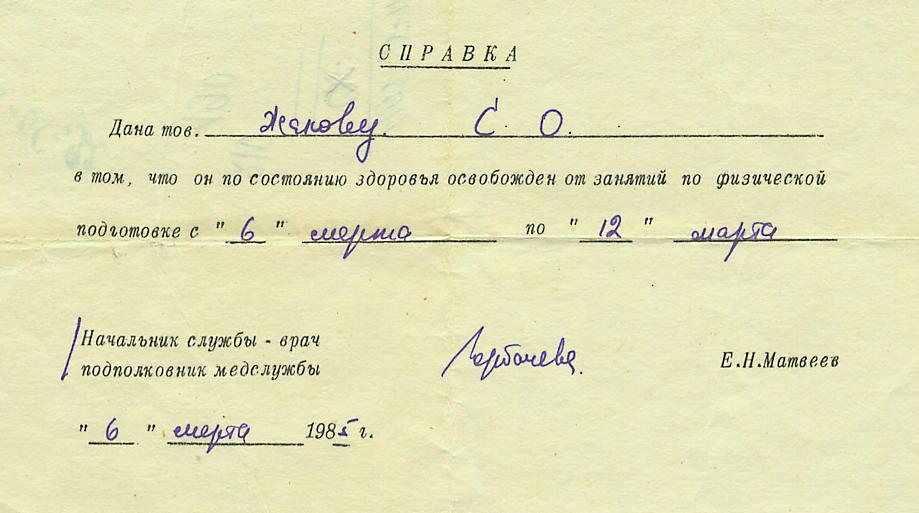 СПРАВКА
Дана тов. Жакову С. О.
в том, что он по состоянию здоровья освобожден от занятий по физической
подготовке с "6" марта по "12" марта
Начальник службы - врач
подполковник медслужбы Горбачева Е.Н.Матвеев
"6" марта 1985 г.